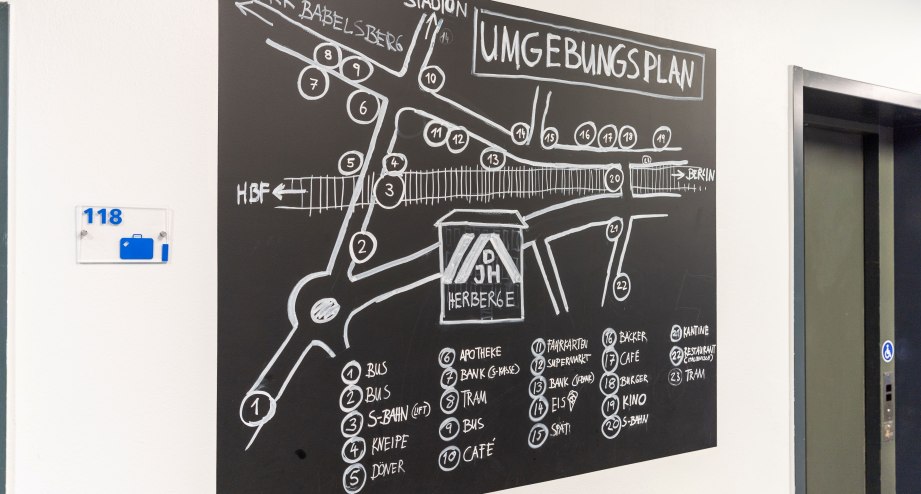 PARK BABELSBERG
STADION
14
UMGEBUNGSPLAN
8
9
7
10
6
11
12
14
15
16
17
18
19
5
4
13
23
HBF
3
20
BERLIN
118
2
21
DJH
HERBERGE
22
1
1 BUS
2 BUS
3 S-BAHN (LIFT)
4 KNEIPE
5 DÖNER
6 APOTHEKE
7 BANK (S-KASSE)
8 TRAM
9 BUS
10 CAFÉ
11 FAHRKARTEN
12 SUPERMARKT
13 BANK
14 EIS
15 SPÄTI
16 BÄCKER
17 CAFÉ
18 BURGER
19 KINO
20 S-BAHN
21 KANTINE
22 RESTAURANT
23 TRAM